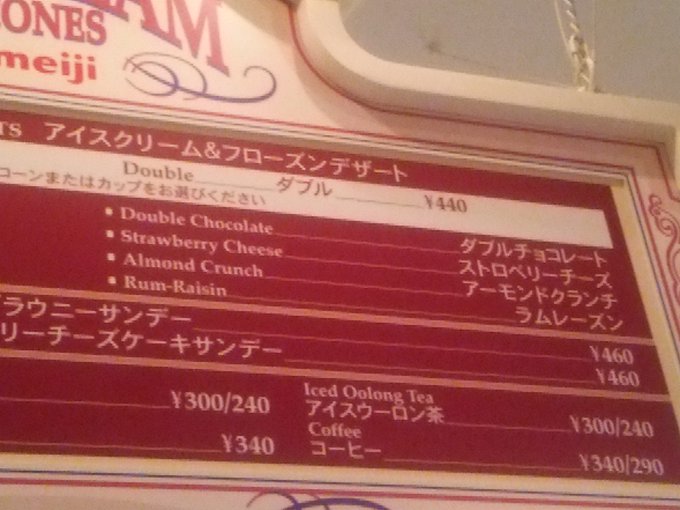 EAM
CONES
meiji
TS アイスクリーム&フローズンデザート
Double ダブル ¥440
コーンまたはカップをお選びください
▪ Double Chocolate ダブルチョコレート
▪ Strawberry Cheese ストロベリーチーズ
▪ Almond Crunch アーモンドクランチ
▪ Rum-Raisin ラムレーズン
ラウニーサンデー ¥460
リーチーズケーキサンデー ¥460
¥300/240
Iced Oolong Tea
アイスウーロン茶 ¥300/240
¥340
Coffee
コーヒー ¥340/290